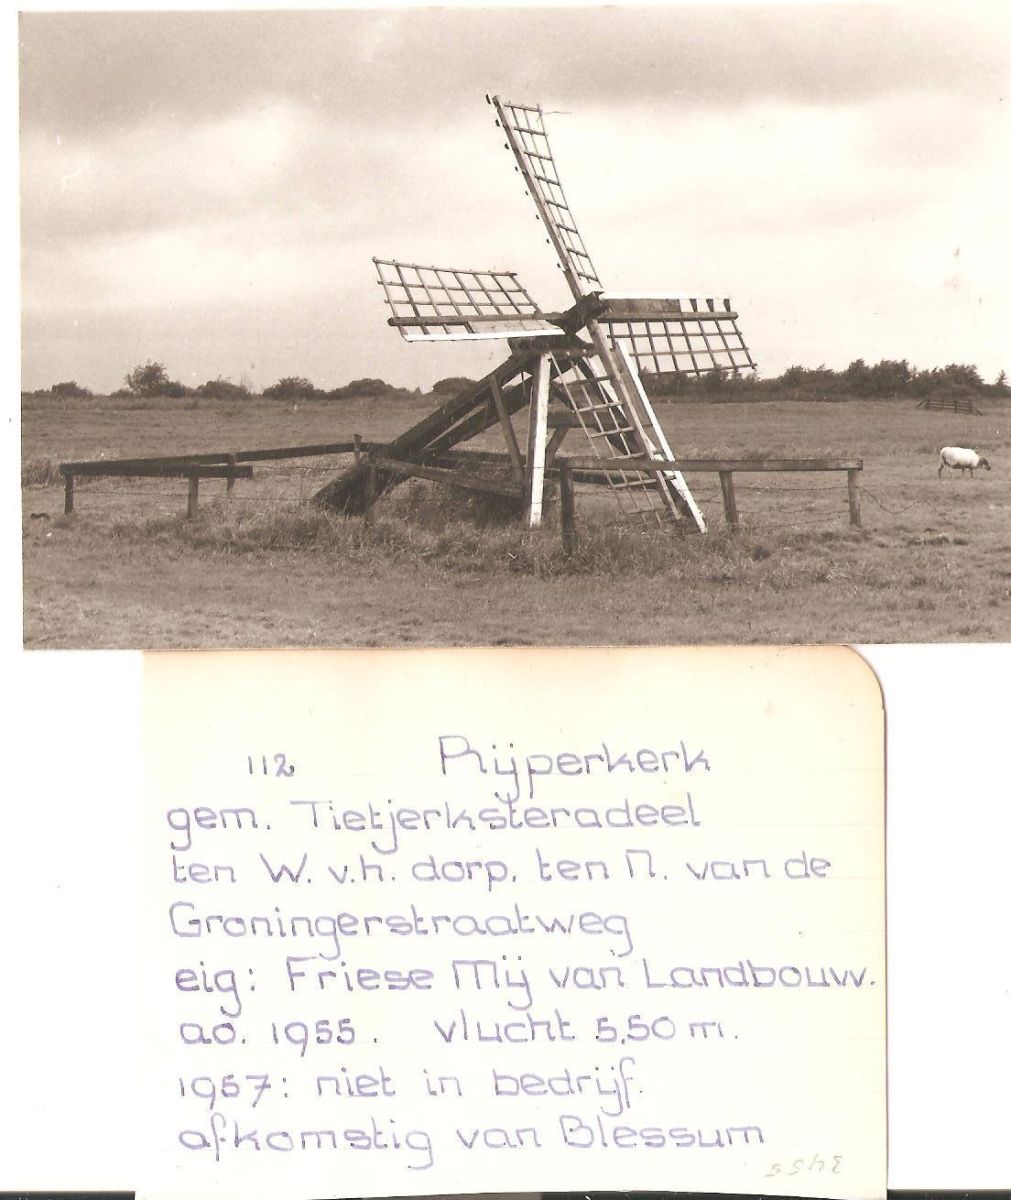 112 Rijperkerk
gem. Tietjerksteradeel
ten W. v.h. dorp, ten N. van de
Groningerstraatweg
eig: Friese Mij van Landbouw.
ao. 1955. vlucht 5,50 m.
1957: niet in bedrijf.
afkomstig van Blessum
3455